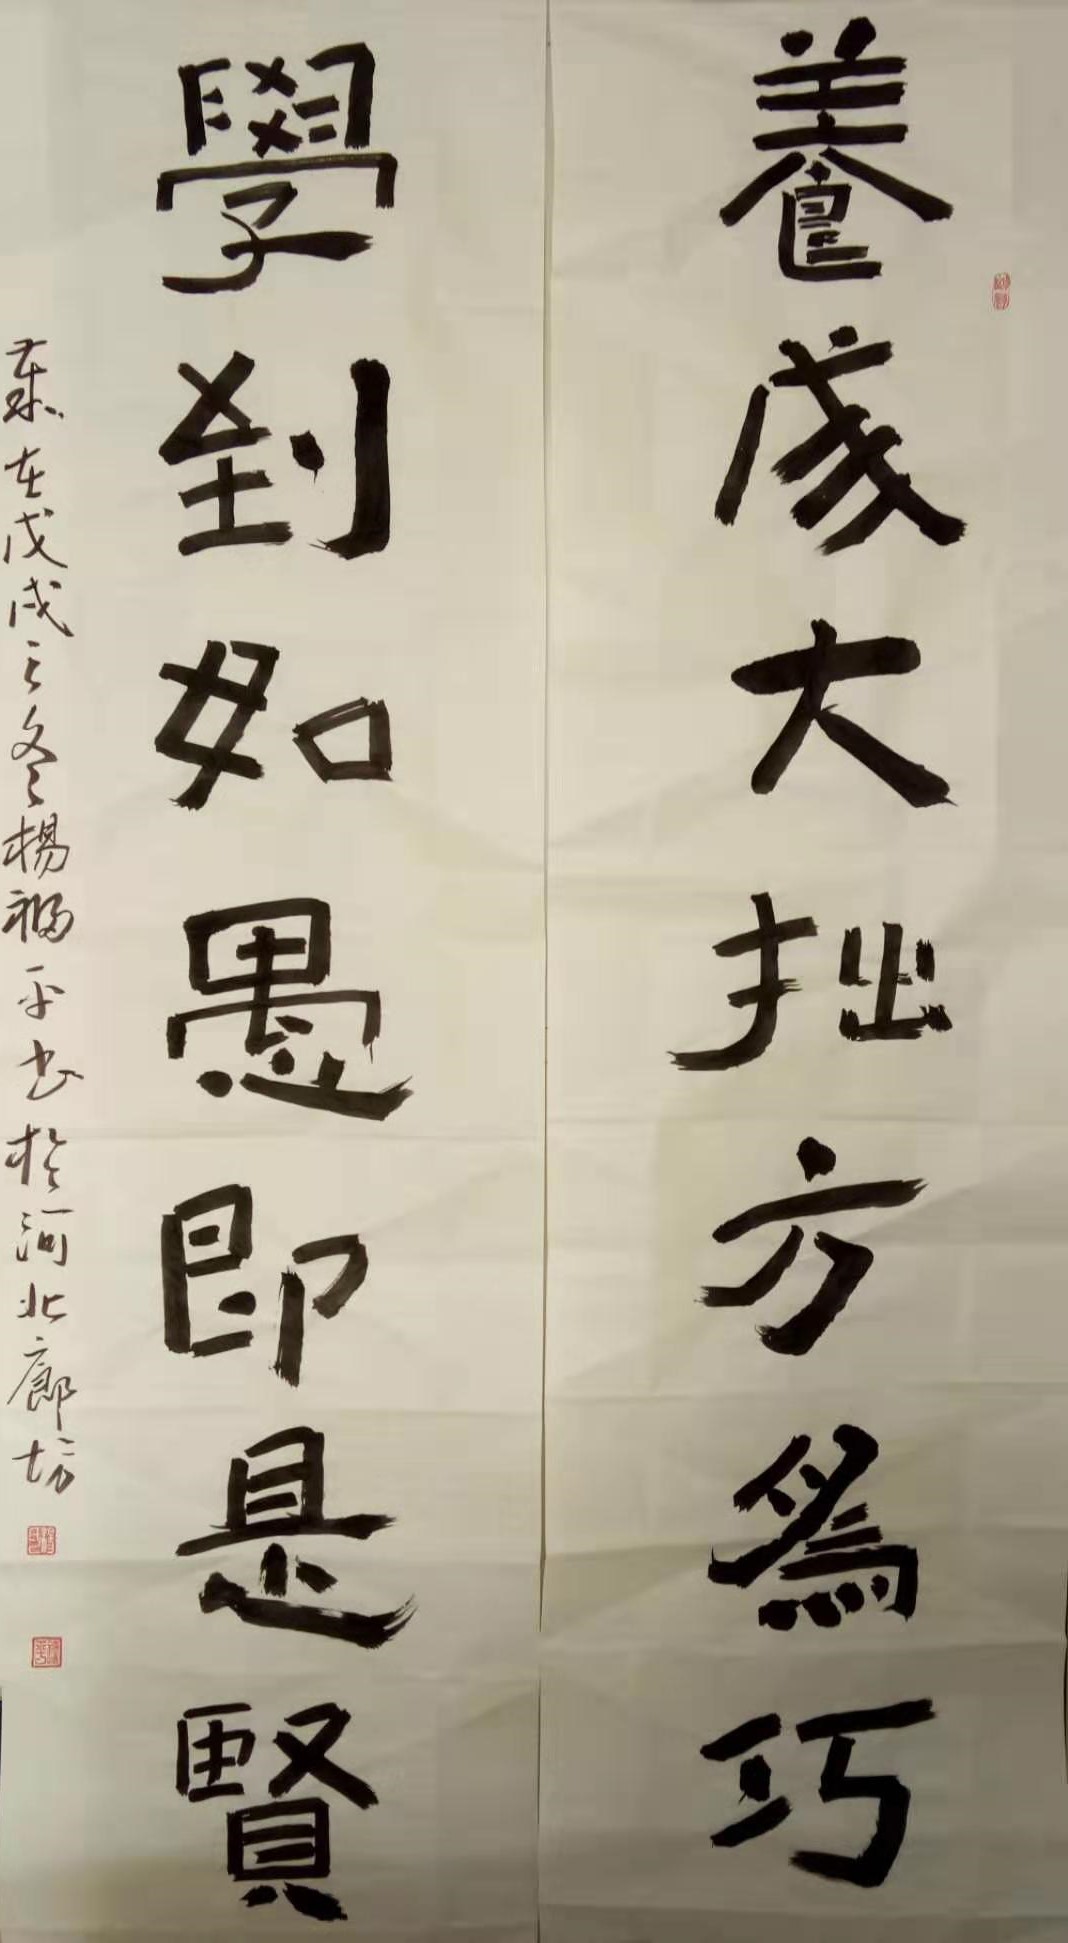 養成大拙方為巧
學到如愚即是賢
歲在戊戌之冬楊福平书於河北廊坊